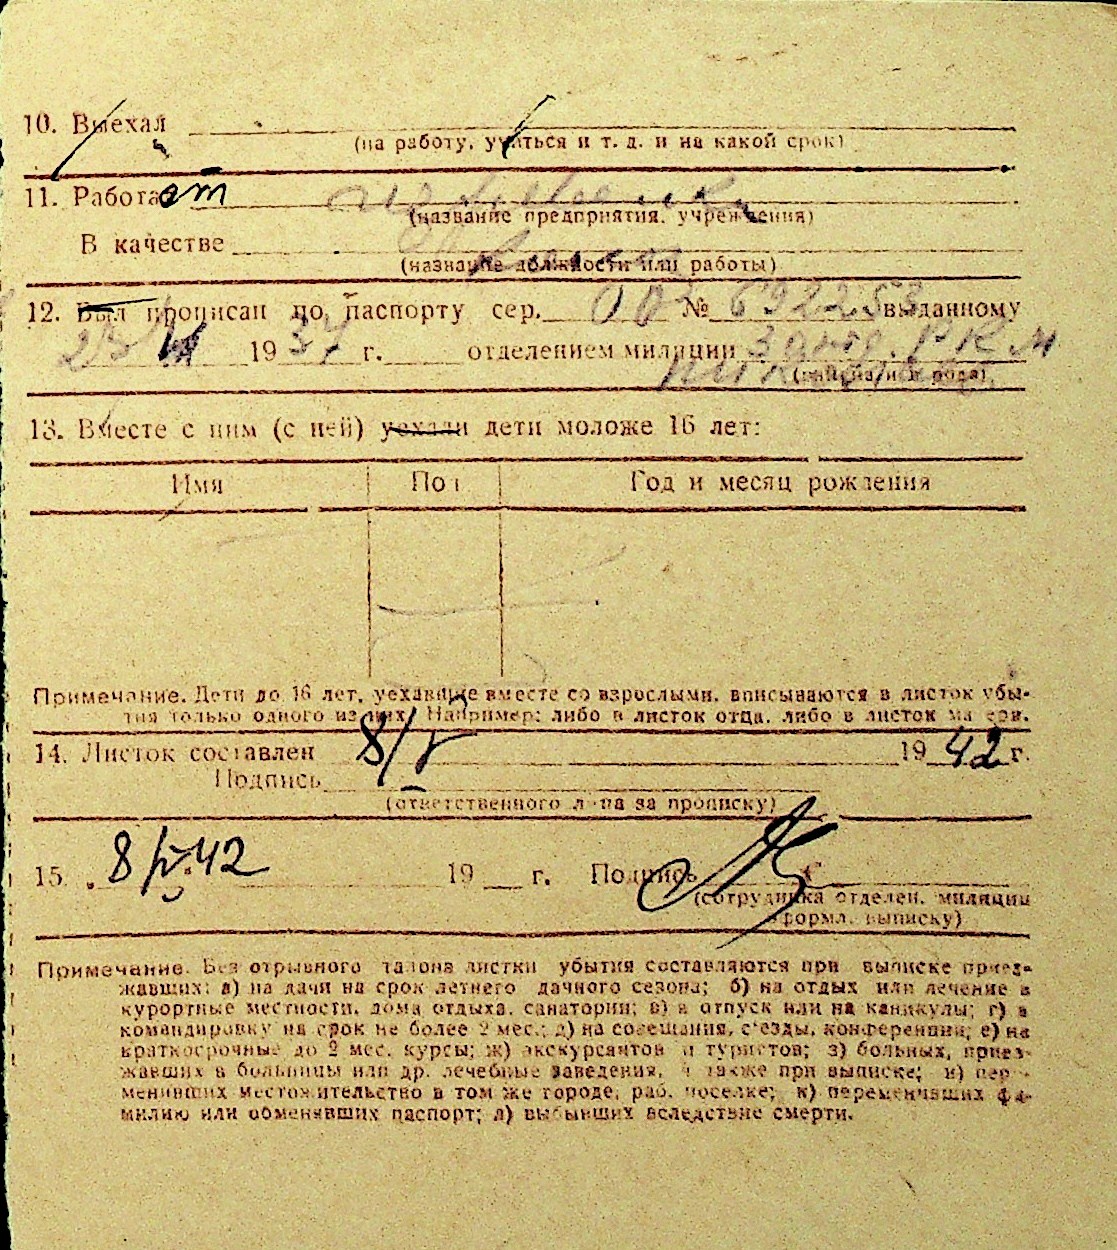 10. Выехал
(на работу, учиться и т. д. и на какой срок)
11. Работает
(название предприятия, учреждения)
В качестве
(название должности или работы)
12. Был прописан по паспорту сер. № 692253 выданному
1937 г. отделением милиции РКМ
13. Вместе с ним (с ней) уехали дети моложе 16 лет:
Имя Пол Год и месяц рождения
Примечание. Дети до 16 лет, уехавшие вместе со взрослыми, вписываются в листок убы-
тия только одного из них. Например: либо в листок отца, либо в листок матери.
14. Листок составлен 8/V 1942 г.
Подпись
(ответственного лица за прописку)
15. 8/V.42 19 г. Подпись
(сотрудника отделен. милиции
оформл. выписку)
Примечание. Без отрывного талона листки убытия составляются при выписке приез-
жавших: а) на дачи на срок летнего дачного сезона; б) на отдых или лечение в
курортные местности, дома отдыха, санатории; в) в отпуск или на каникулы; г) в
командировку на срок не более 2 мес.; д) на совещания, с'езды, конференции; е) на
краткосрочные до 2 мес. курсы; ж) экскурсантов и туристов; з) больных, приез-
жавших в больницы или др. лечебные заведения, а также при выписке; и) пере-
менивших местожительство в том же городе, раб. поселке; к) переменивших фа-
милию или обменявших паспорт; л) выбывших вследствие смерти.